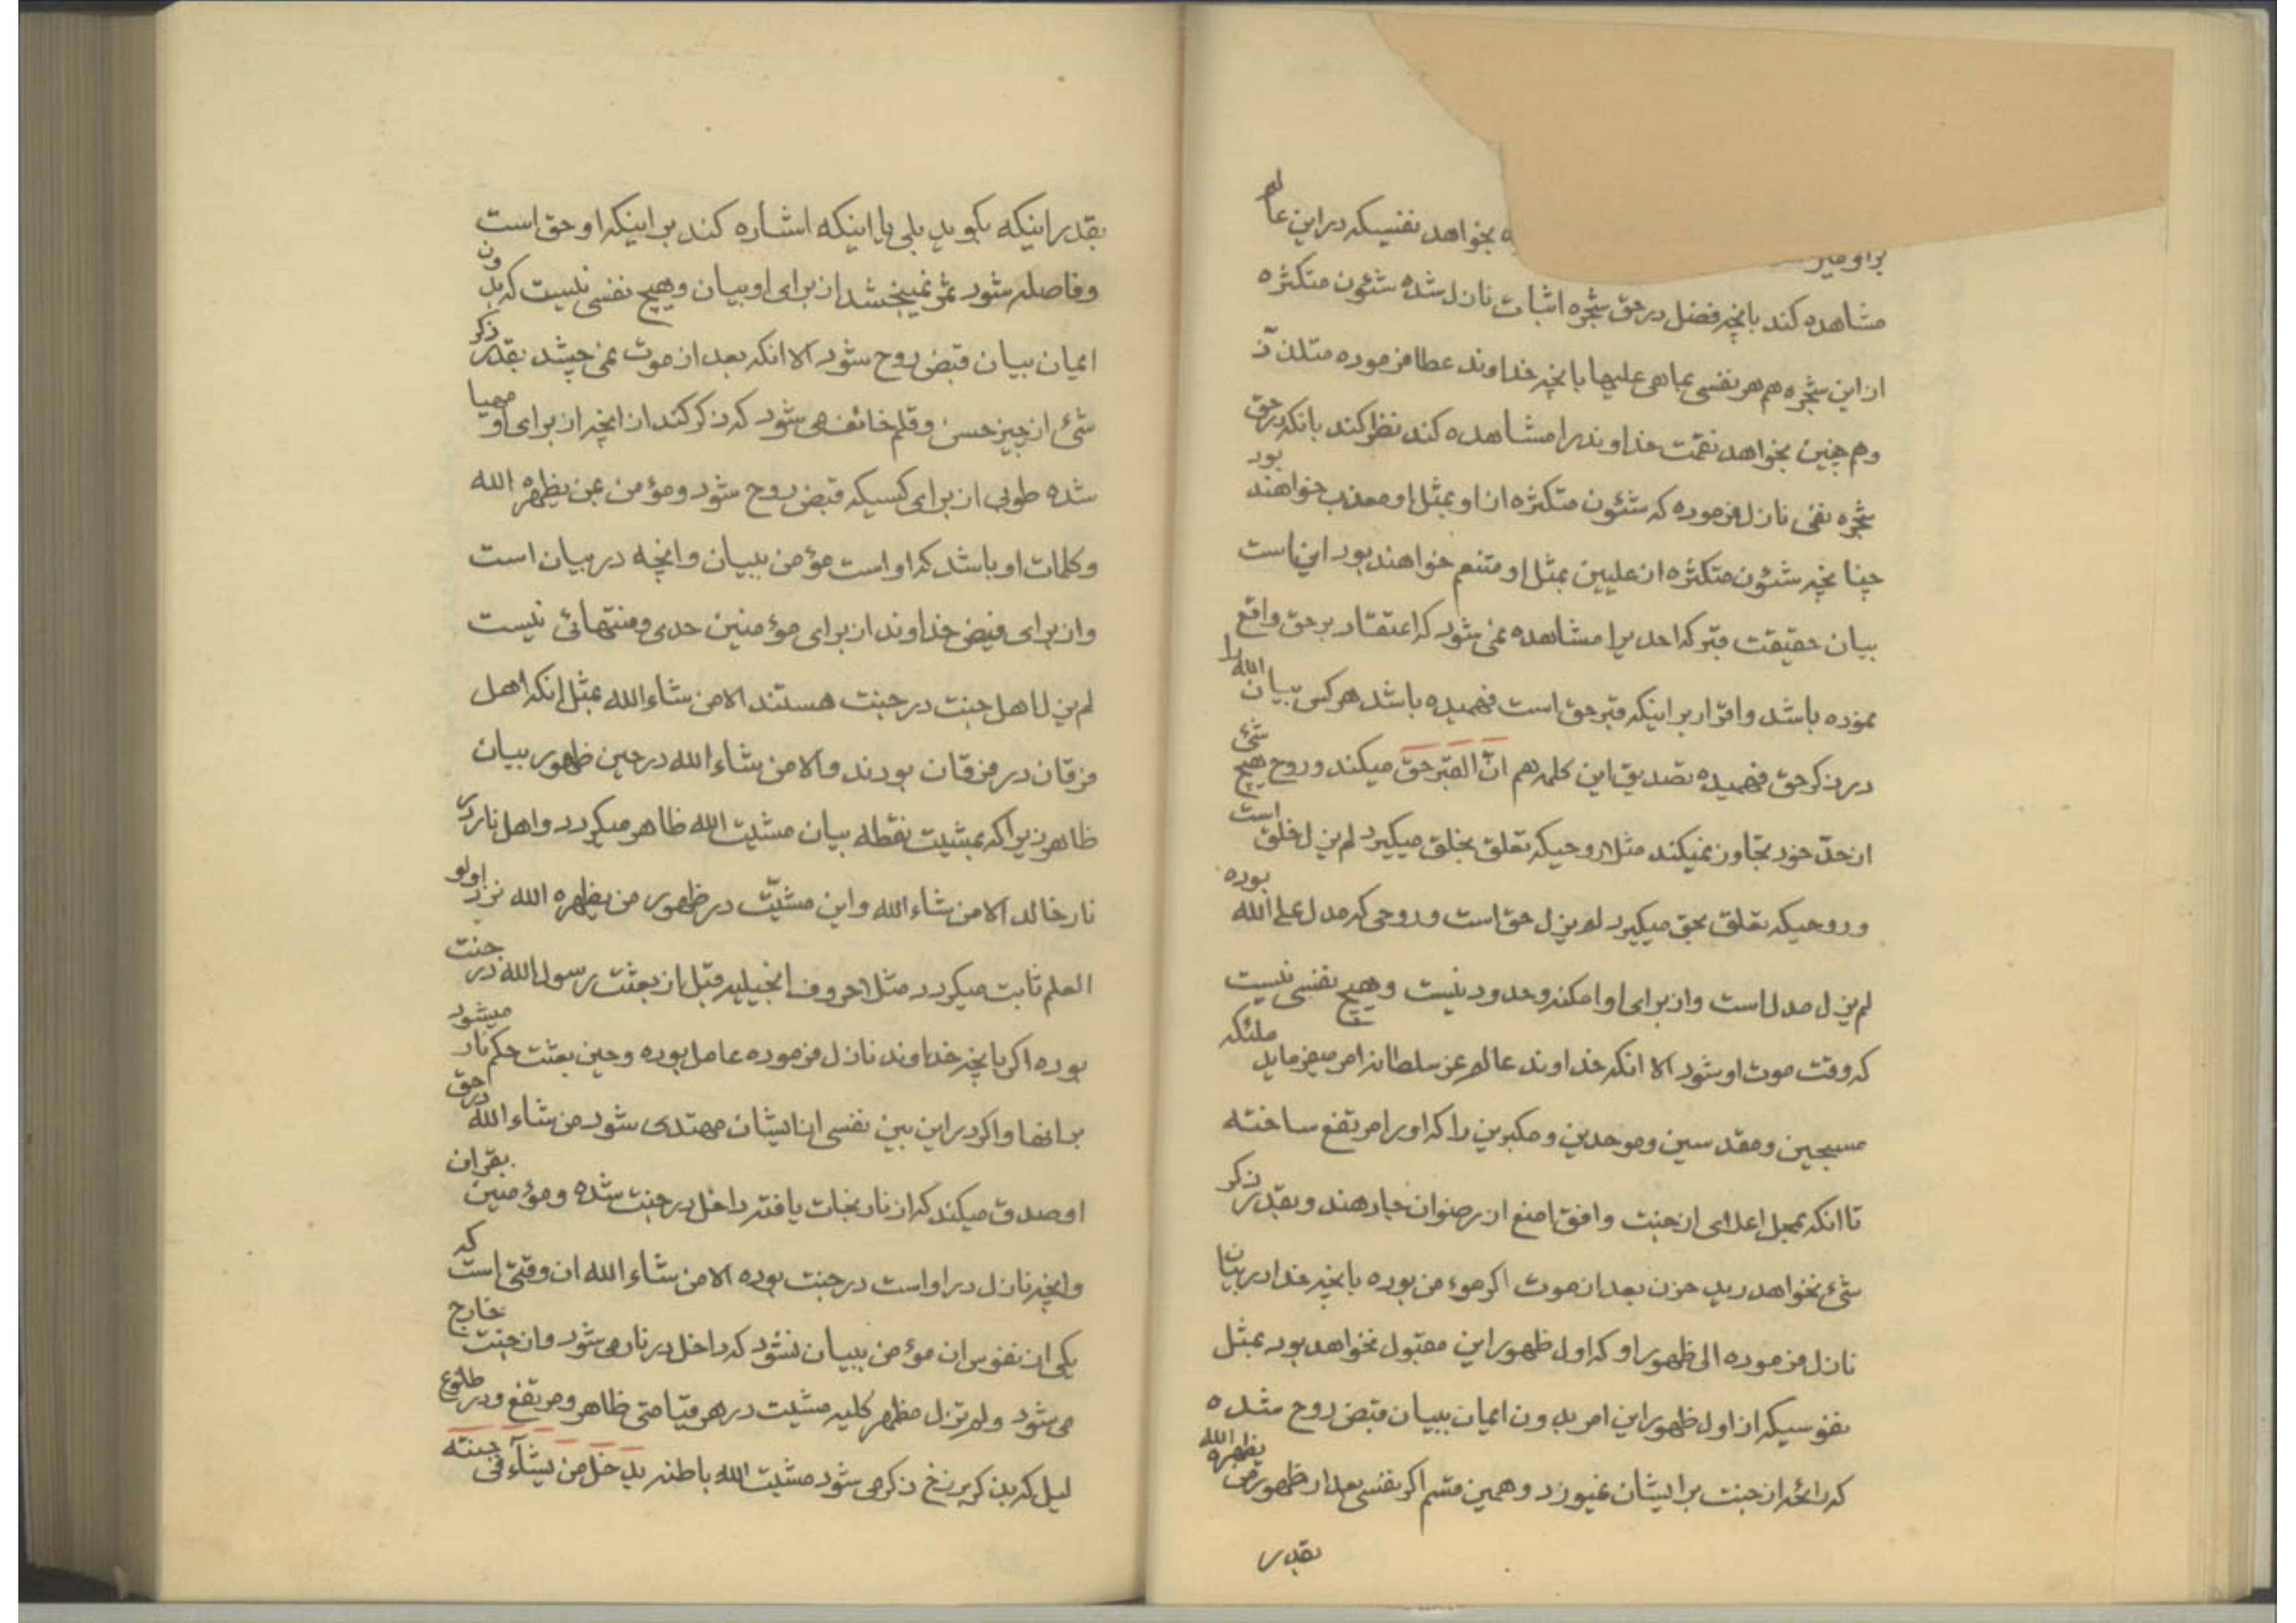 بخواهد نفسیکه در این عالم
مشاهده کند بانچه فضل در حق شجره اثبات نازل شده شئون متکثره
از این شجره هم هر نفسی بما هی علیها بانچه خداوند عطا فرموده متلذذ
و هم چنین بخواهد نقمت خداوند را مشاهده کند نظر کند بانکه در حق
شجره نفی نازل فرموده که شئون متکثره از او بمثل او معذب خواهند بود
چنانچه شئون متکثره از علیین بمثل او متنعم خواهند بود این است
بیان حقیقت قبر که احدیرا مشاهده نمی شود که اعتقاد بر حق واقع
نموده باشد و اقرار بر اینکه قبر حق است فهمیده باشد هر کس بیان الله را
در ذکر حق فهمیده تصدیق این کلمه هم ان القبر حق میکند و روح هیچ شئ
از حد خود تجاوز نمیکند مثلا روحیکه تعلق بخلق میگیرد لم یزل خلق است
و روحیکه تعلق بحق میگیرد لم یزل حق است و روحی که مدل علی الله بوده
لم یزل مدل است و از برای او امکنه و حدود نیست و هیچ نفسی نیست
که وقت موت او شود الا انکه خداوند عالم عز سلطانه امر میفرماید ملئکه
مسبحین و مقدسین و موحدین و مکبرین را که او را مرتفع ساخته
تا انکه بمحل اعلای از جنت و افق امنع از رضوان جا دهند و بقدر ذکر
شئ نخواهد دید حزن بعد از موت اگر موءمن بوده بانچه خدا در بیان
نازل فرموده الی ظهور او که اول ظهور این مقبول نخواهد بود بمثل
نفوسیکه از اول ظهور این امر بدون ایمان ببیان قبض روح شده
که رائحه از جنت بر ایشان نمیوزد و همین قسم اگر نفسی بعد از ظهور من یظهره الله
بقدر
بقدر اینکه بگوید بلی یا اینکه اشاره کند بر اینکه او حق است
و فاصله شود ثمر نمیبخشد از برای او بیان و هیچ نفسی نیست که بدون
ایمان ببیان قبض روح شود الا انکه بعد از موت نمی چشد بقدر ذکر
شئ از چیز حسن و قلم خائف می شود که ذکر کند از انچه از برای او مهیا
شده طوبی از برای کسیکه قبض روح شود و مؤمن بمن یظهره الله
و کلمات او باشد که او است مؤمن ببیان و انچه در بیان است
و از برای فیض خداوند از برای مؤمنین حدی و منتهائی نیست
لم یزل اهل جنت در جنت هستند الا من شاء الله بمثل انکه اهل
فرقان در فرقان بودند و الا من شاء الله در حین ظهور بیان
ظاهر زیرا که بمشیت نقطه بیان مشیت الله ظاهر میگردد و اهل نار در
نار خالد الا من شاء الله و این مشیّت در ظهور من یظهره الله نزد اولو
العلم ثابت میگردد مثلا حروف انجیلیه قبل از بعثت رسول الله در جنت
بوده اگر بانچه خداوند نازل فرموده عامل بوده و حین بعثت حکم نار میشود
بر انها و اگر در این بین نفسی از ایشان مهتدی شود من شاء الله در حق
او صدق میکند که از نار نجات یافته داخل در جنت شده و مؤمنین بقران
و انچه نازل در او است در جنت بوده الا من شاء الله ان وقتی است که
یکی از نفوس ان مؤمن ببیان نشود که داخل در نار می شود و از جنت خارج
می شود و لم تزل مظهر کلیه مشیت در هر قیامتی ظاهر و مرتفع و در طلوع
لیل که بذکر برزخ ذکر می شود مشیت الله باطنه یدخل من یشآء فی جنته